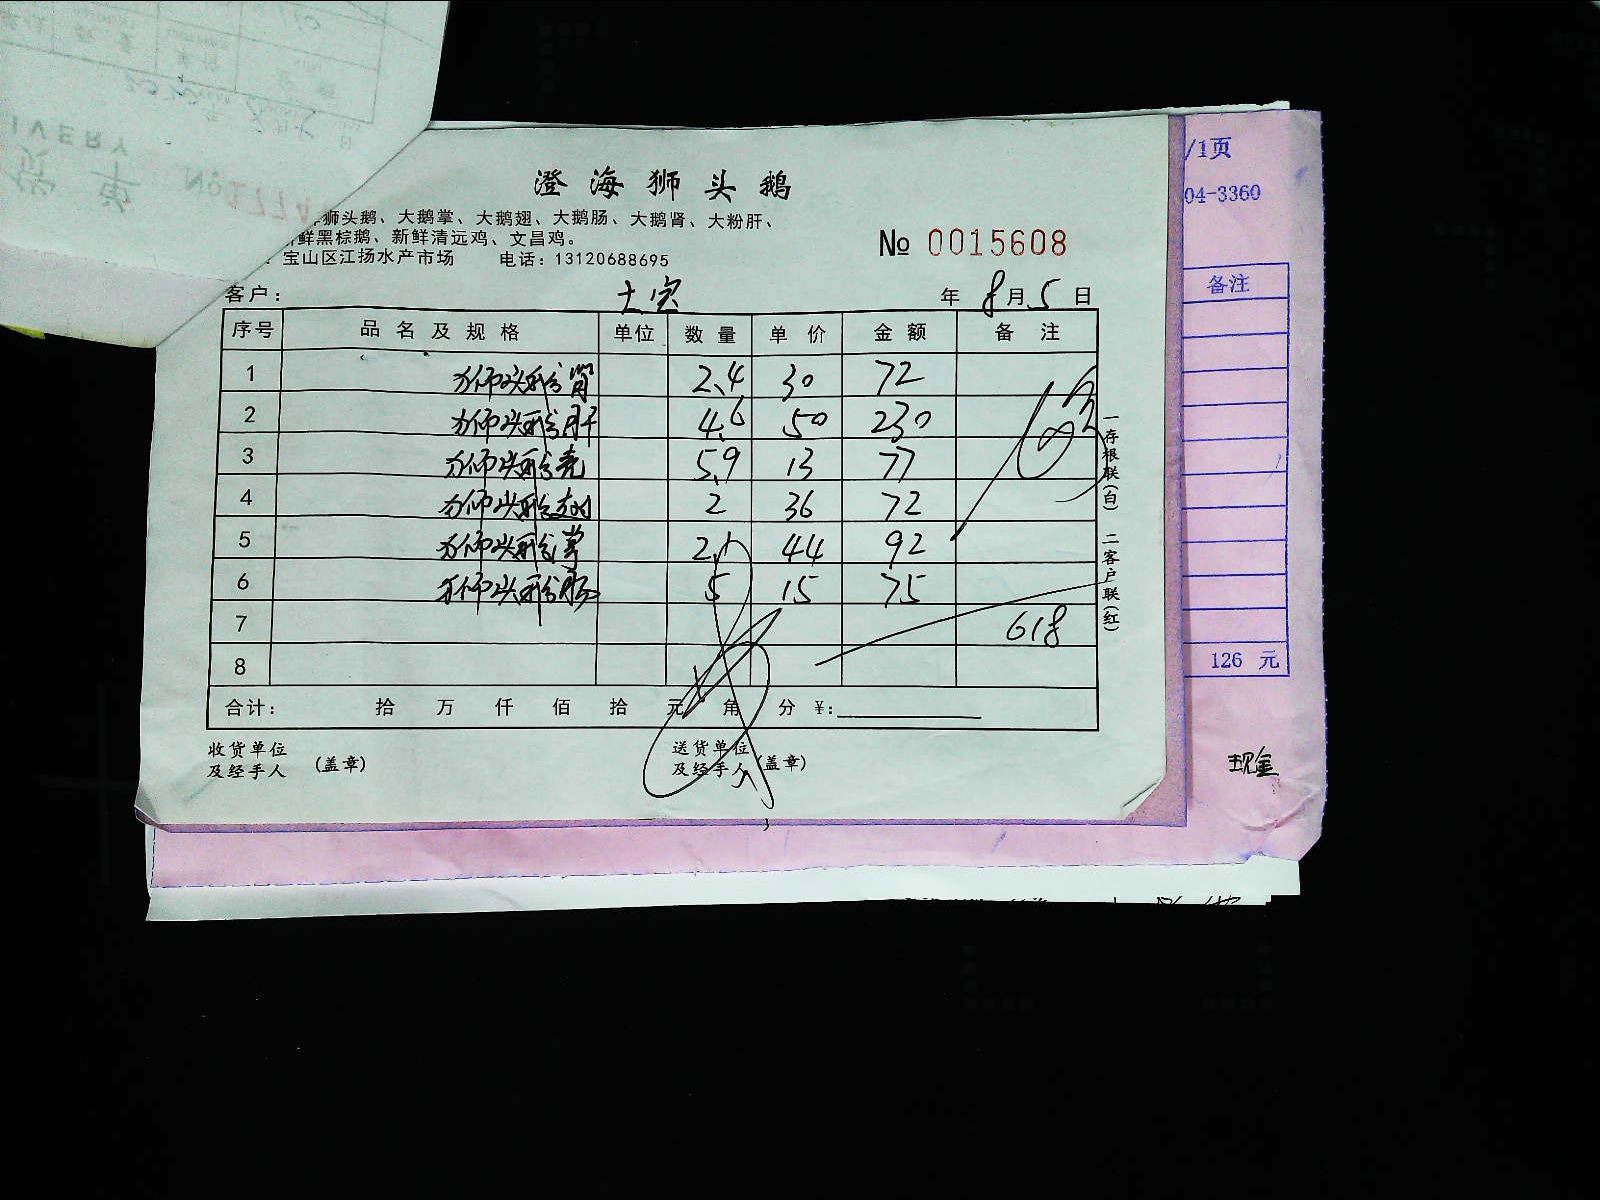 IVERY
货 单 No 1774
澄海狮头鹅
狮头鹅、大鹅掌、大鹅翅、大鹅肠、大鹅肾、大粉肝、
鲜黑棕鹅、新鲜清远鸡、文昌鸡。
宝山区江扬水产市场 电话：13120688695
No 0015608
客户： 年 8月5日
序号 品名及规格 单位 数量 单价 金额 备注
1 狮头鹅肾 2.4 30 72
2 狮头鹅肝 4.6 50 230
3 狮头鹅壳 5.9 13 77
4 狮头鹅翅 2 36 72
5 狮头鹅掌 2.1 44 92
6 狮头鹅肠 5 15 75
7 618
8
合计： 拾 万 仟 佰 拾 元 角 分 ¥:
收货单位
及经手人 (盖章)
送货单位
及经手人 (盖章)
一存根联(白) 二客户联(红)
/1页
04-3360
备注
126 元
现金